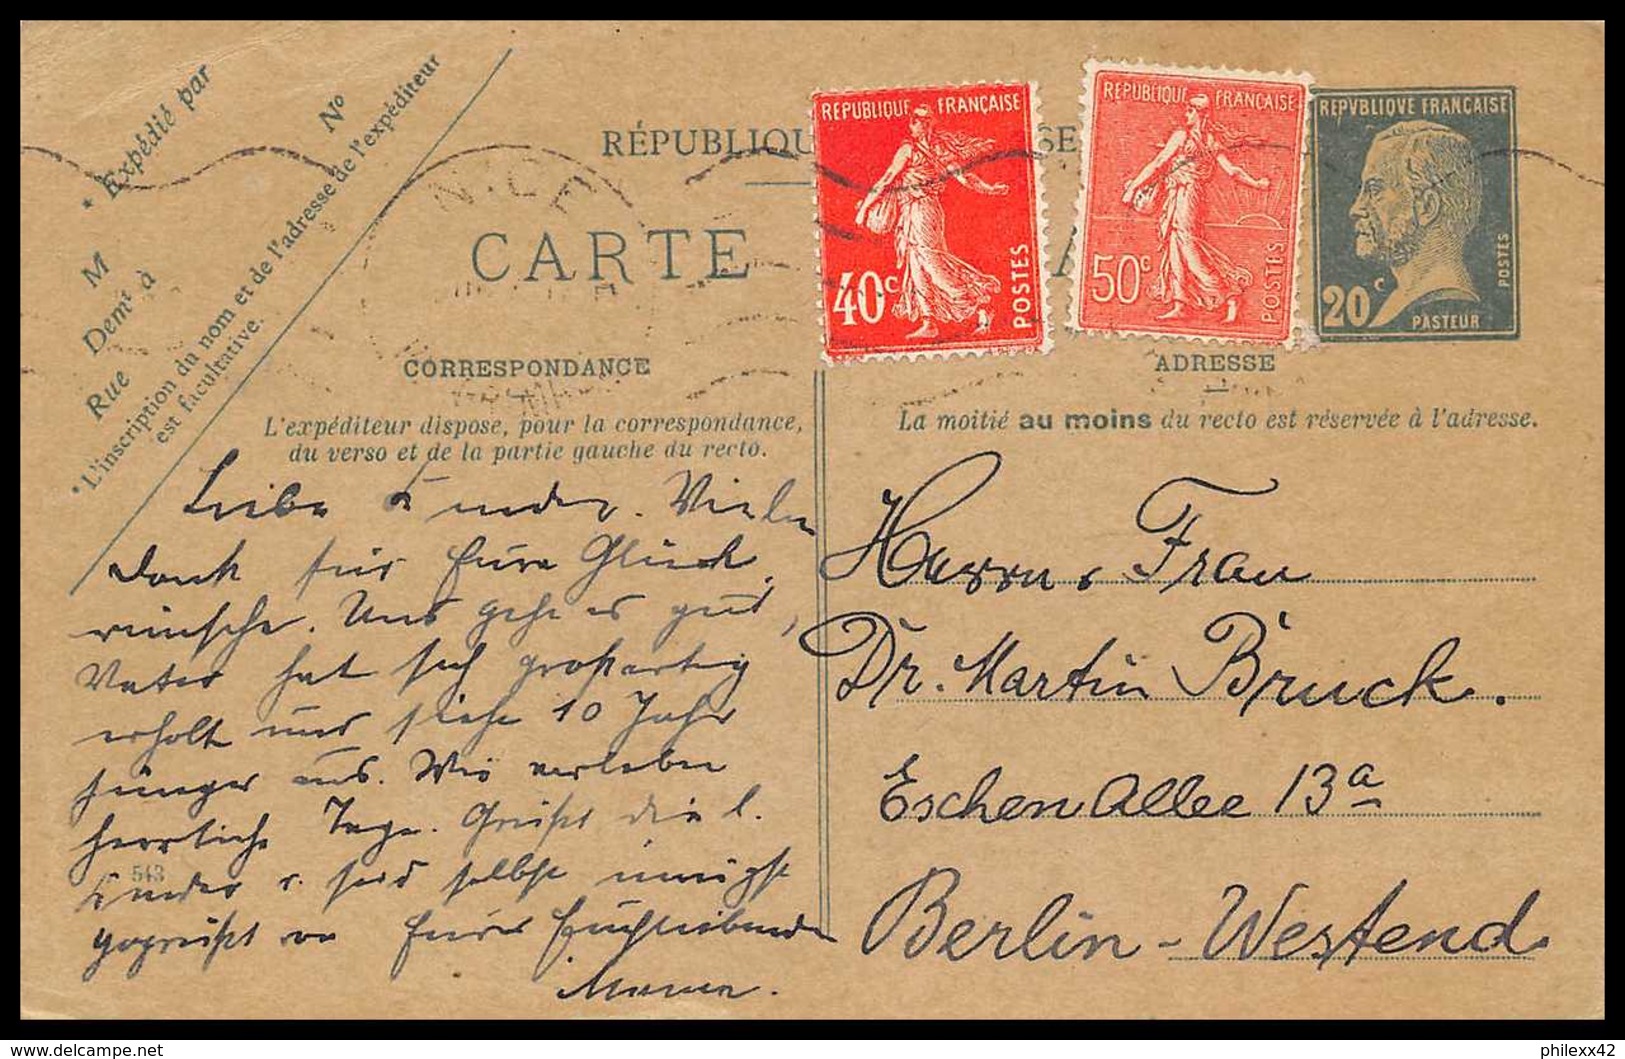 * Expédié par
M
Demt à
Rue
No
*L'inscription du nom et de l'adresse de l'expéditeur
est facultative.
RÉPUBLIQU SE
CARTE A
REPUBLIQUE FRANÇAISE
40c
POSTES
REPUBLIQUE FRANÇAISE
50c
POSTES
REPVBLIQVE FRANÇAISE
20c
PASTEUR
POSTES
CORRESPONDANCE
L'expéditeur dispose, pour la correspondance,
du verso et de la partie gauche du recto.
ADRESSE
La moitié au moins du recto est réservée à l'adresse.
Liebe Kinder. Vielen
Dank für Eure Glück
wünsche. Uns gehe es gut,
Vater hat sich großartig
erholt und siehe 10 Jahr
jünger aus. Wir verleben
herrliche Tage. Grüßt die l.
Kinder u. seid selbst innigst
gegrüßt von Eurer Euchliebenden
Mama.
543
Herrn u Frau
Dr. Martin Bruck.
Eschen Allee 13a
Berlin - Westend.
delcampe.net
philexx42